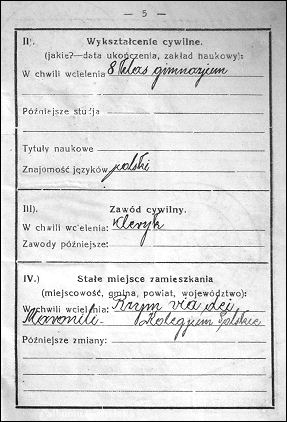 — 5 —
II). Wykształcenie cywilne.
(jakie?—data ukończenia, zakład naukowy):
W chwili wcielenia 8 klas gimnazjum
Późniejsze studja
Tytuły naukowe
Znajomość języków polski
III). Zawód cywilny.
W chwili wcielenia: Kleryk
Zawody późniejsze:
IV.) Stałe miejsce zamieszkania
(miejscowość, gmina, powiat, województwo):
W chwili wcielenia: Rzym via dei
Maroniti - Kolegjum Polskie
Późniejsze zmiany: